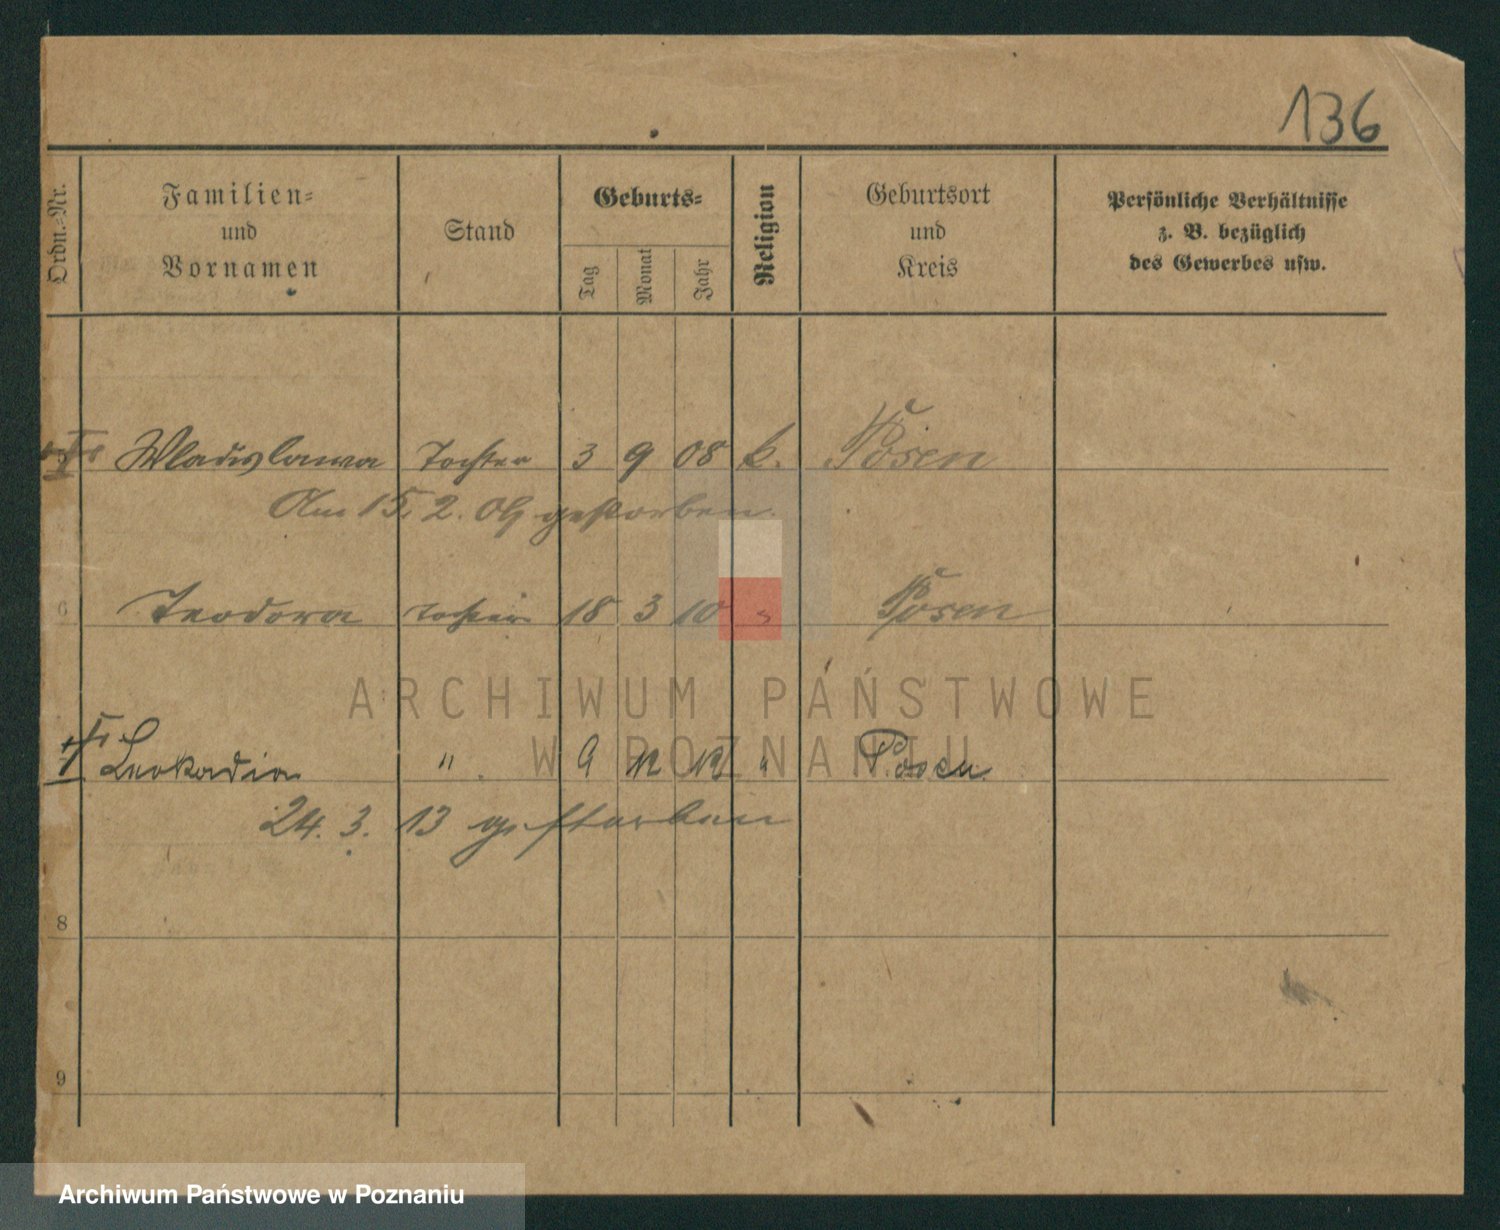 136
Ordn.-Nr.
Familien-
und
Vornamen
Stand
Geburts-
Tag
Monat
Jahr
Religion
Geburtsort
und
Kreis
Persönliche Verhältnisse
z. B. bezüglich
des Gewerbes usw.
Wladislawa Tochter 3 9 08 k. Posen
Am 15. 2. 09 gestorben
6 Teodora Tochter 18 3 10 " Posen
Leokadia " 9 12 12 " Posen
24. 3. 13 gestorben
8
9
ARCHIWUM PAŃSTWOWE
W POZNANIU
Archiwum Państwowe w Poznaniu